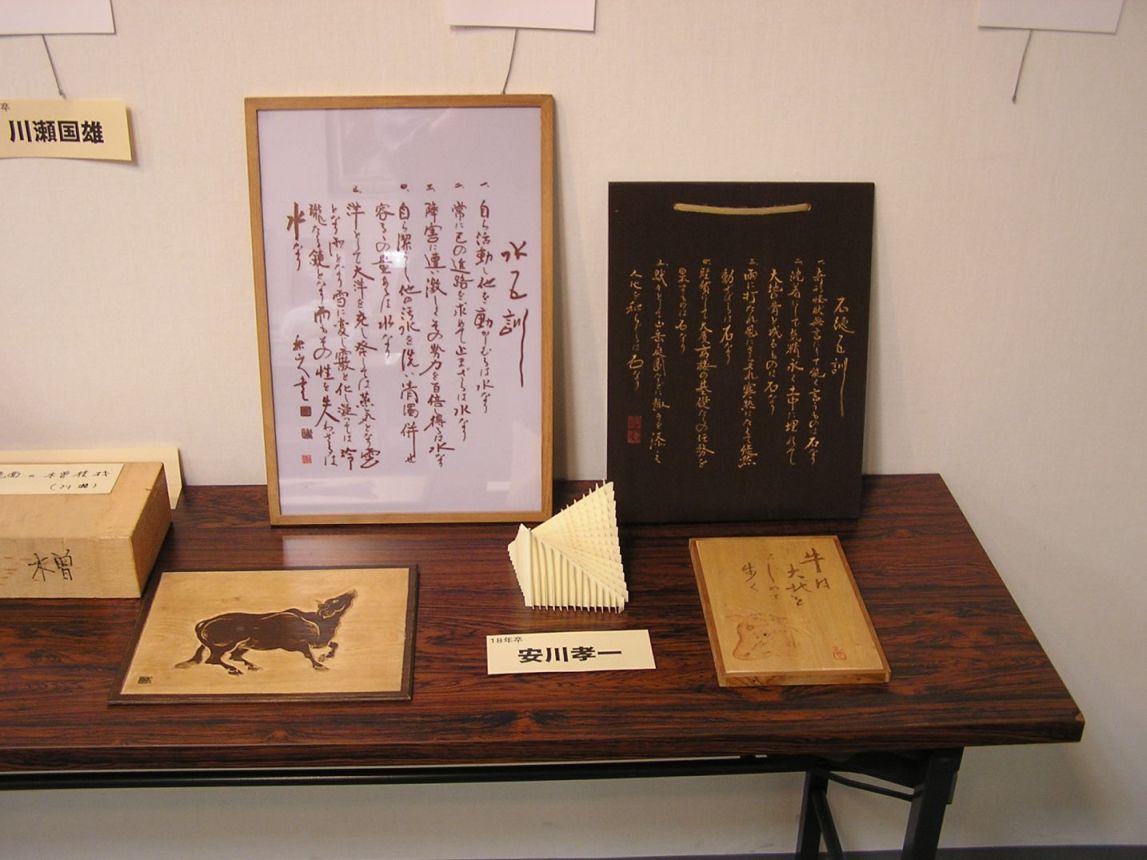 卒
川瀬国雄
水五訓
一、自ら活動し他を動かしむるは水なり
二、常に己の進路を求めて止まざるは水なり
三、障害に遭い激しその勢力を百倍し得るは水なり
四、自ら潔うして他の汚水を洗い清濁併せ
容るるの量あるは水なり
五、洋々として大洋を充し発しては蒸気となり雲
となり雨となり雪に変じ霰と化し凝っては玲
瓏なる鏡となり而もその性を失わざるは
水なり
石徳五訓
一、奇形怪状無言にして能く言うものは石なり
二、沈着にして気精永く土中に埋れて
大地の骨と成るものは石なり
三、雨に打たれ風にさらされ寒熱にたえて悠然
動ぜざるは石なり
四、堅質にして大廈高楼の基礎たるの任務を
果すものは石なり
五、黙々として山岳庭園などに趣きを添え
人心を和らぐるは石なり
木曽
18年卒
安川孝一
牛は
大地を
歩く